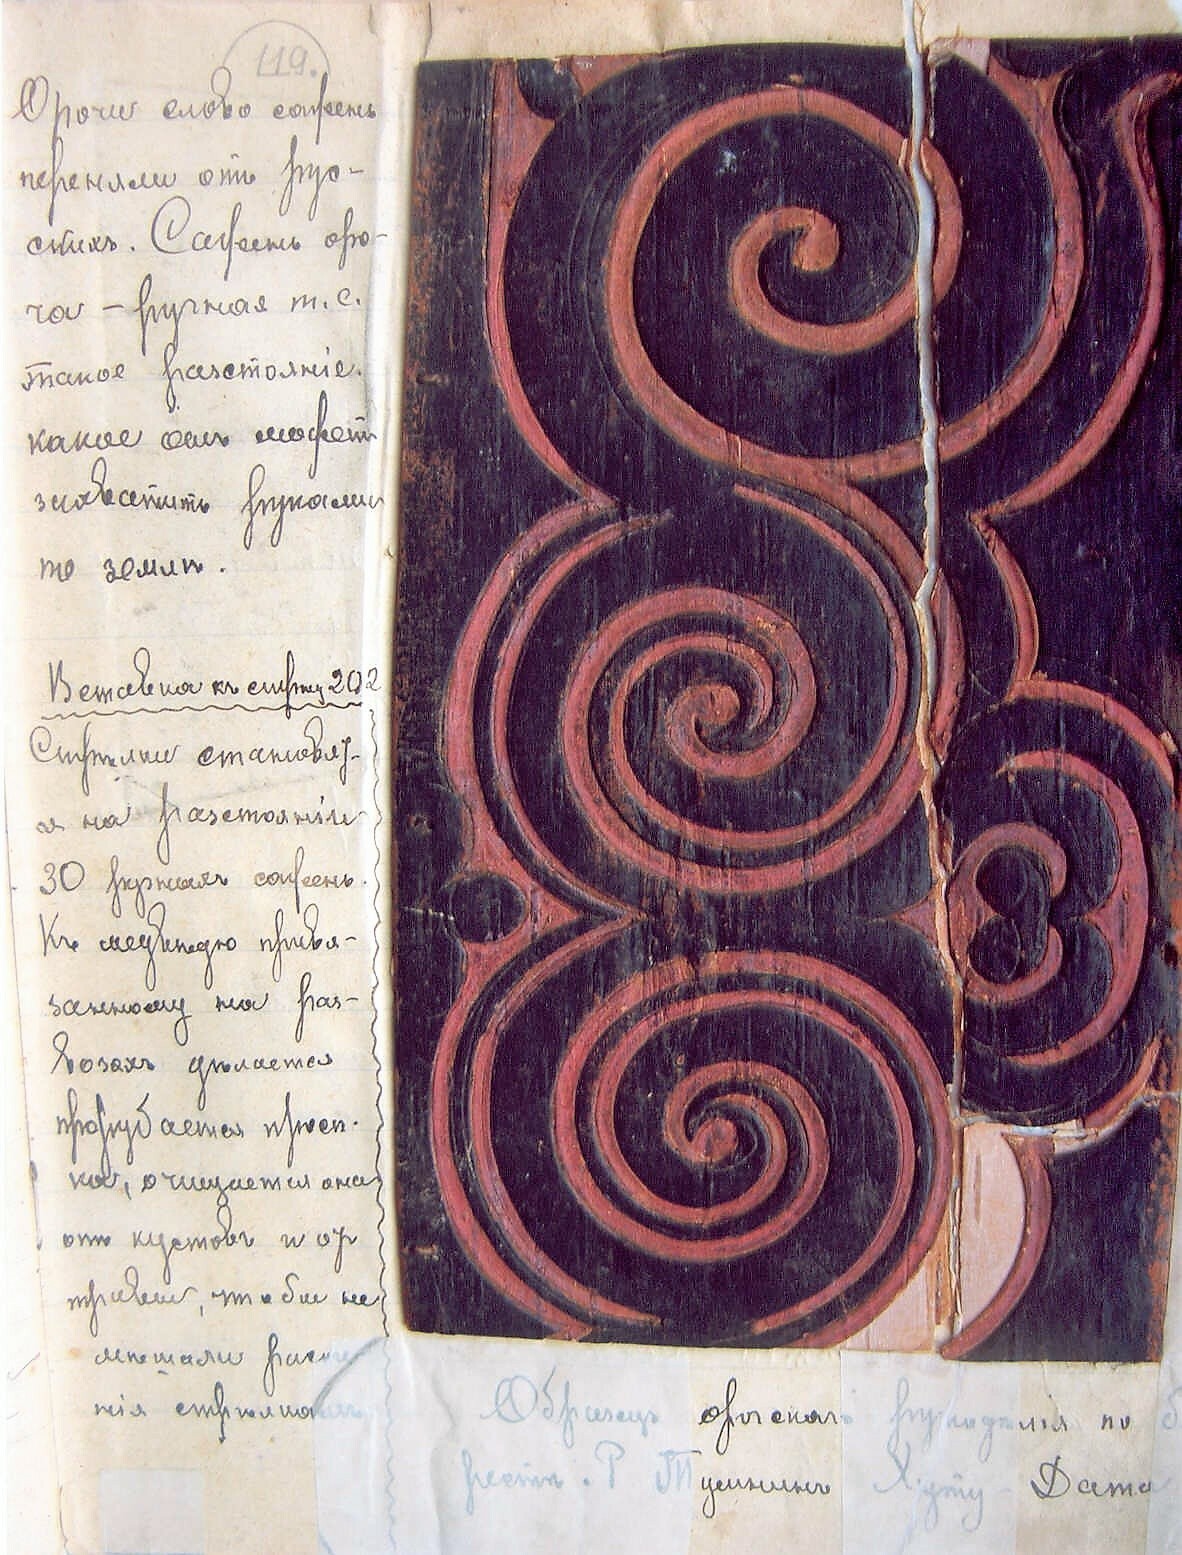 119.
Орочи слово сажень
переняли отъ рус-
скихъ. Сажень оро-
ча – ручная т. е.
такое разстояніе
какое онъ можетъ
захватить руками
по землѣ.
Вставка къ стрну 202
Стрѣлки становят-
ся на разстояніи
30 ручныхъ сажень.
Къ медвѣдю привя-
занному на раз-
возахъ дѣлается
прорубается просѣ-
ка, очищается она
отъ кустовъ и от
травы, чтобы не
мѣшали
стрѣлкамъ
Образецъ орочскаго рукодѣлія по
бересте. Р Тумнинъ Хуту – Дата